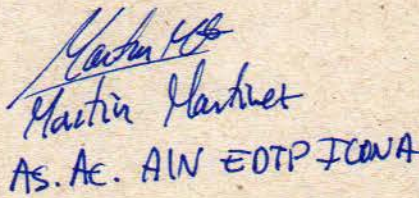 Martin
Martin Martinet
AS. AE. AIN EOTP ICONA